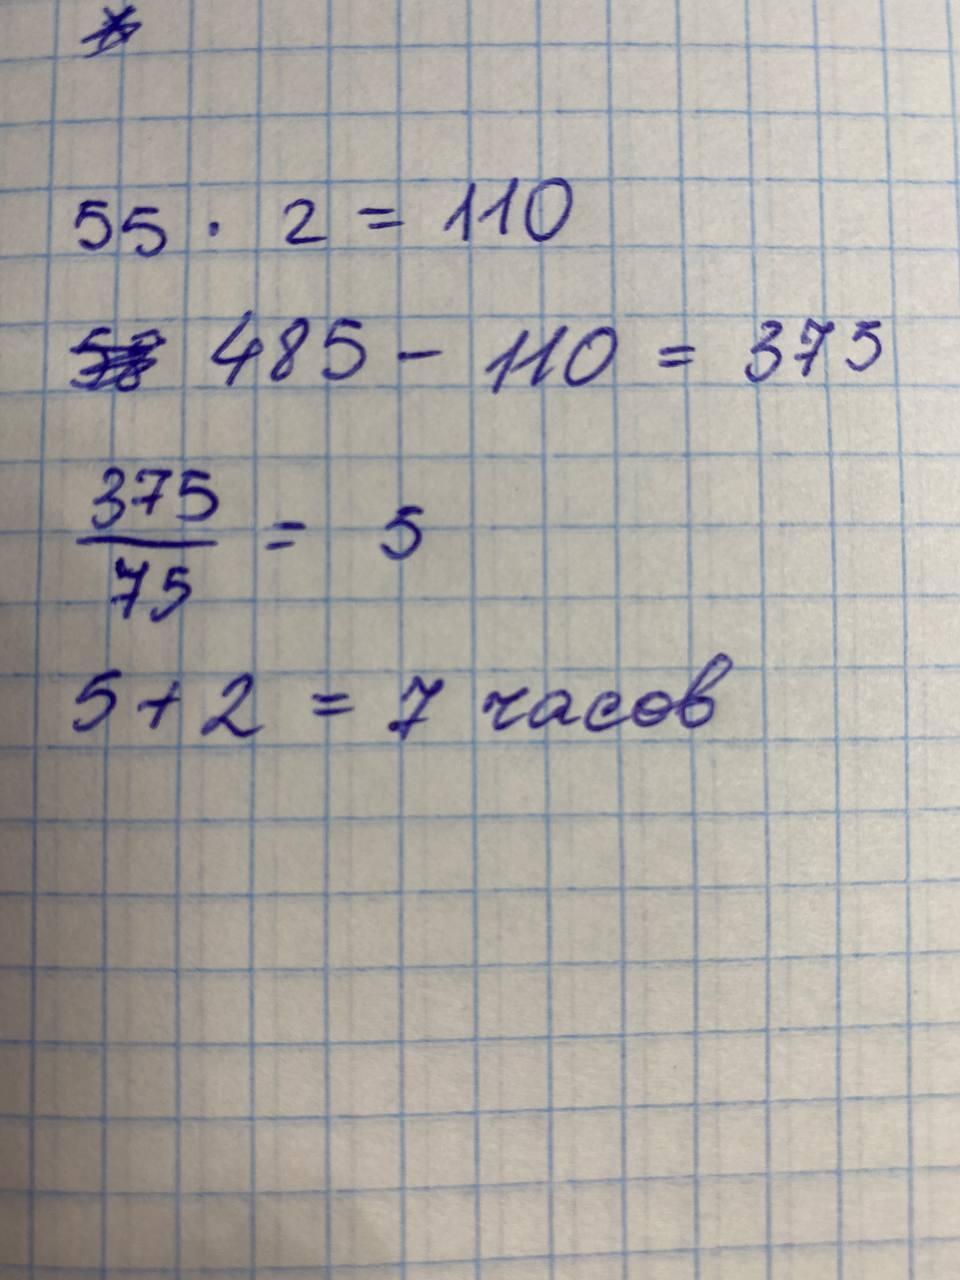 55 · 2 = 110
485 - 110 = 375
375
75
= 5
5 + 2 = 7 часов